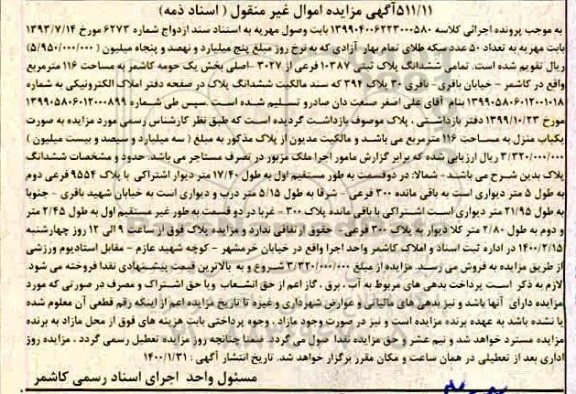 ۵۱۱/۱۱آگهی مزایده اموال غیر منقول ( اسناد ذمه)
به موجب پرونده اجرائی کلاسه ۱۳۹۹۰۴۰۰۶۲۲۳۰۰۰۵۸۰ بابت وصول مهریه به استناد سند ازدواج شماره ۶۲۷۳ مورخ ۱۳۹۳/۷/۱۴
بابت مهریه به تعداد ۵۰ عدد سکه طلای تمام بهار آزادی که به نرخ روز مبلغ پنج میلیارد و نهصد و پنجاه میلیون ( ۵/۹۵۰/۰۰۰/۰۰۰)
ریال تقویم شده است. تمامی ششدانگ پلاک ثبتی ۱۰۳۸۷ فرعی از ۳۰۲۷ -اصلی بخش یک حومه کاشمر به مساحت ۱۱۶ مترمربع
واقع در کاشمر - خیابان باقری- باقری ۳۰ پلاک ۳۹۴ که سند مالکیت ششدانگ پلاک در صفحه دفتر املاک الکترونیکی به شماره
۱۳۹۹۲۰۵۸۰۶۰۱۲۰۰۱۰۱۸ بنام آقای علی اصغر صنعت دان صادرو تسلیم شده است .سپس طی شماره ۱۳۹۹۰۵۸۰۶۰۱۲۰۰۰۸۹۹
مورخ ۱۳۹۹/۱۰/۲۳ دفتر بازداشتی ، پلاک موصوف بازداشت گردیده است که طبق نظر کارشناس رسمی مورد مزایده به صورت
یکباب منزل به مساحت ۱۱۶ مترمربع می باشد و مالکیت مدیون از پلاک مذکور به مبلغ ( سه میلیارد و سیصد و بیست میلیون )
۳/۳۲۰/۰۰۰/۰۰۰ ریال ارزیابی شده که برابر گزارش مامور اجرا ملک مزبور در تصرف مستاجر می باشد. حدود و مشخصات ششدانگ
پلاک بدین شرح می باشد- شمالا: در دوقسمت به طور مستقیم اول به طول ۱۷/۴۰ متر دیوار اشتراکی با پلاک ۹۵۵۴ فرعی دوم
به طول ۵ متر دیواری است به باقی مانده ۳۰۰ فرعی - شرقا به طول ۵/۱۵ متر درب و دیواری است به خیابان شهید باقری - جنوبا
به طول ۲۱/۹۵ متر دیواریست اشتراکی با باقی مانده پلاک ۳۰۰ - غربا در دو قسمت به طور غیر مستقیم اول به طول ۲/۴۵ متر
و دوم به طول ۲/۸۰ متر کلا دیوار به پلاک ۳۰۰ فرعی- حقوق ارتفاقی ندارد و مزایده پلاک فوق از ساعت ۹ الی ۱۲ روز چهارشنبه
۱۴۰۰/۲/۱۵ در اداره ثبت اسناد و املاک کاشمر واحد اجرا واقع در خیابان خرمشهر - کوچه شهید عازم - مقابل استادیوم ورزشی
از طریق مزایده به فروش می رسد. مزایده از مبلغ ۳/۳۲۰/۰۰۰/۰۰۰ شروع و به بالاترین قیمت پیشنهادی نقدا فروخته می شود.
لازم به ذکر است پرداخت بدهی های مربوط به آب ، برق ، گاز اعم از حق انشعاب ویا حق اشتراک و مصرف در صورتی که مورد
مزایده دارای آنها باشد و نیز بدهی های مالیاتی و عوارض شهرداری و غیره تا تاریخ مزایده اعم از اینکه رقم قطعی آن معلوم شده
یا نشده باشد به عهده برنده مزایده است و نیز در صورت وجود مازاد، وجوه پرداختی بابت هزینه های فوق از محل مازاد به برنده
مزایده مسترد خواهد شد و نیم عشر و حق مزایده نقدا صول می گردد. ضمنا چنانچه روز مزایده تعطیل رسمی گردد ، مزایده روز
اداری بعد از تعطیلی در همان ساعت و مکان مقرر برگزار خواهد شد. تاریخ انتشار آگهی : ۱۴۰۰/۱/۳۱
مسئول واحد اجرای اسناد رسمی کاشمر